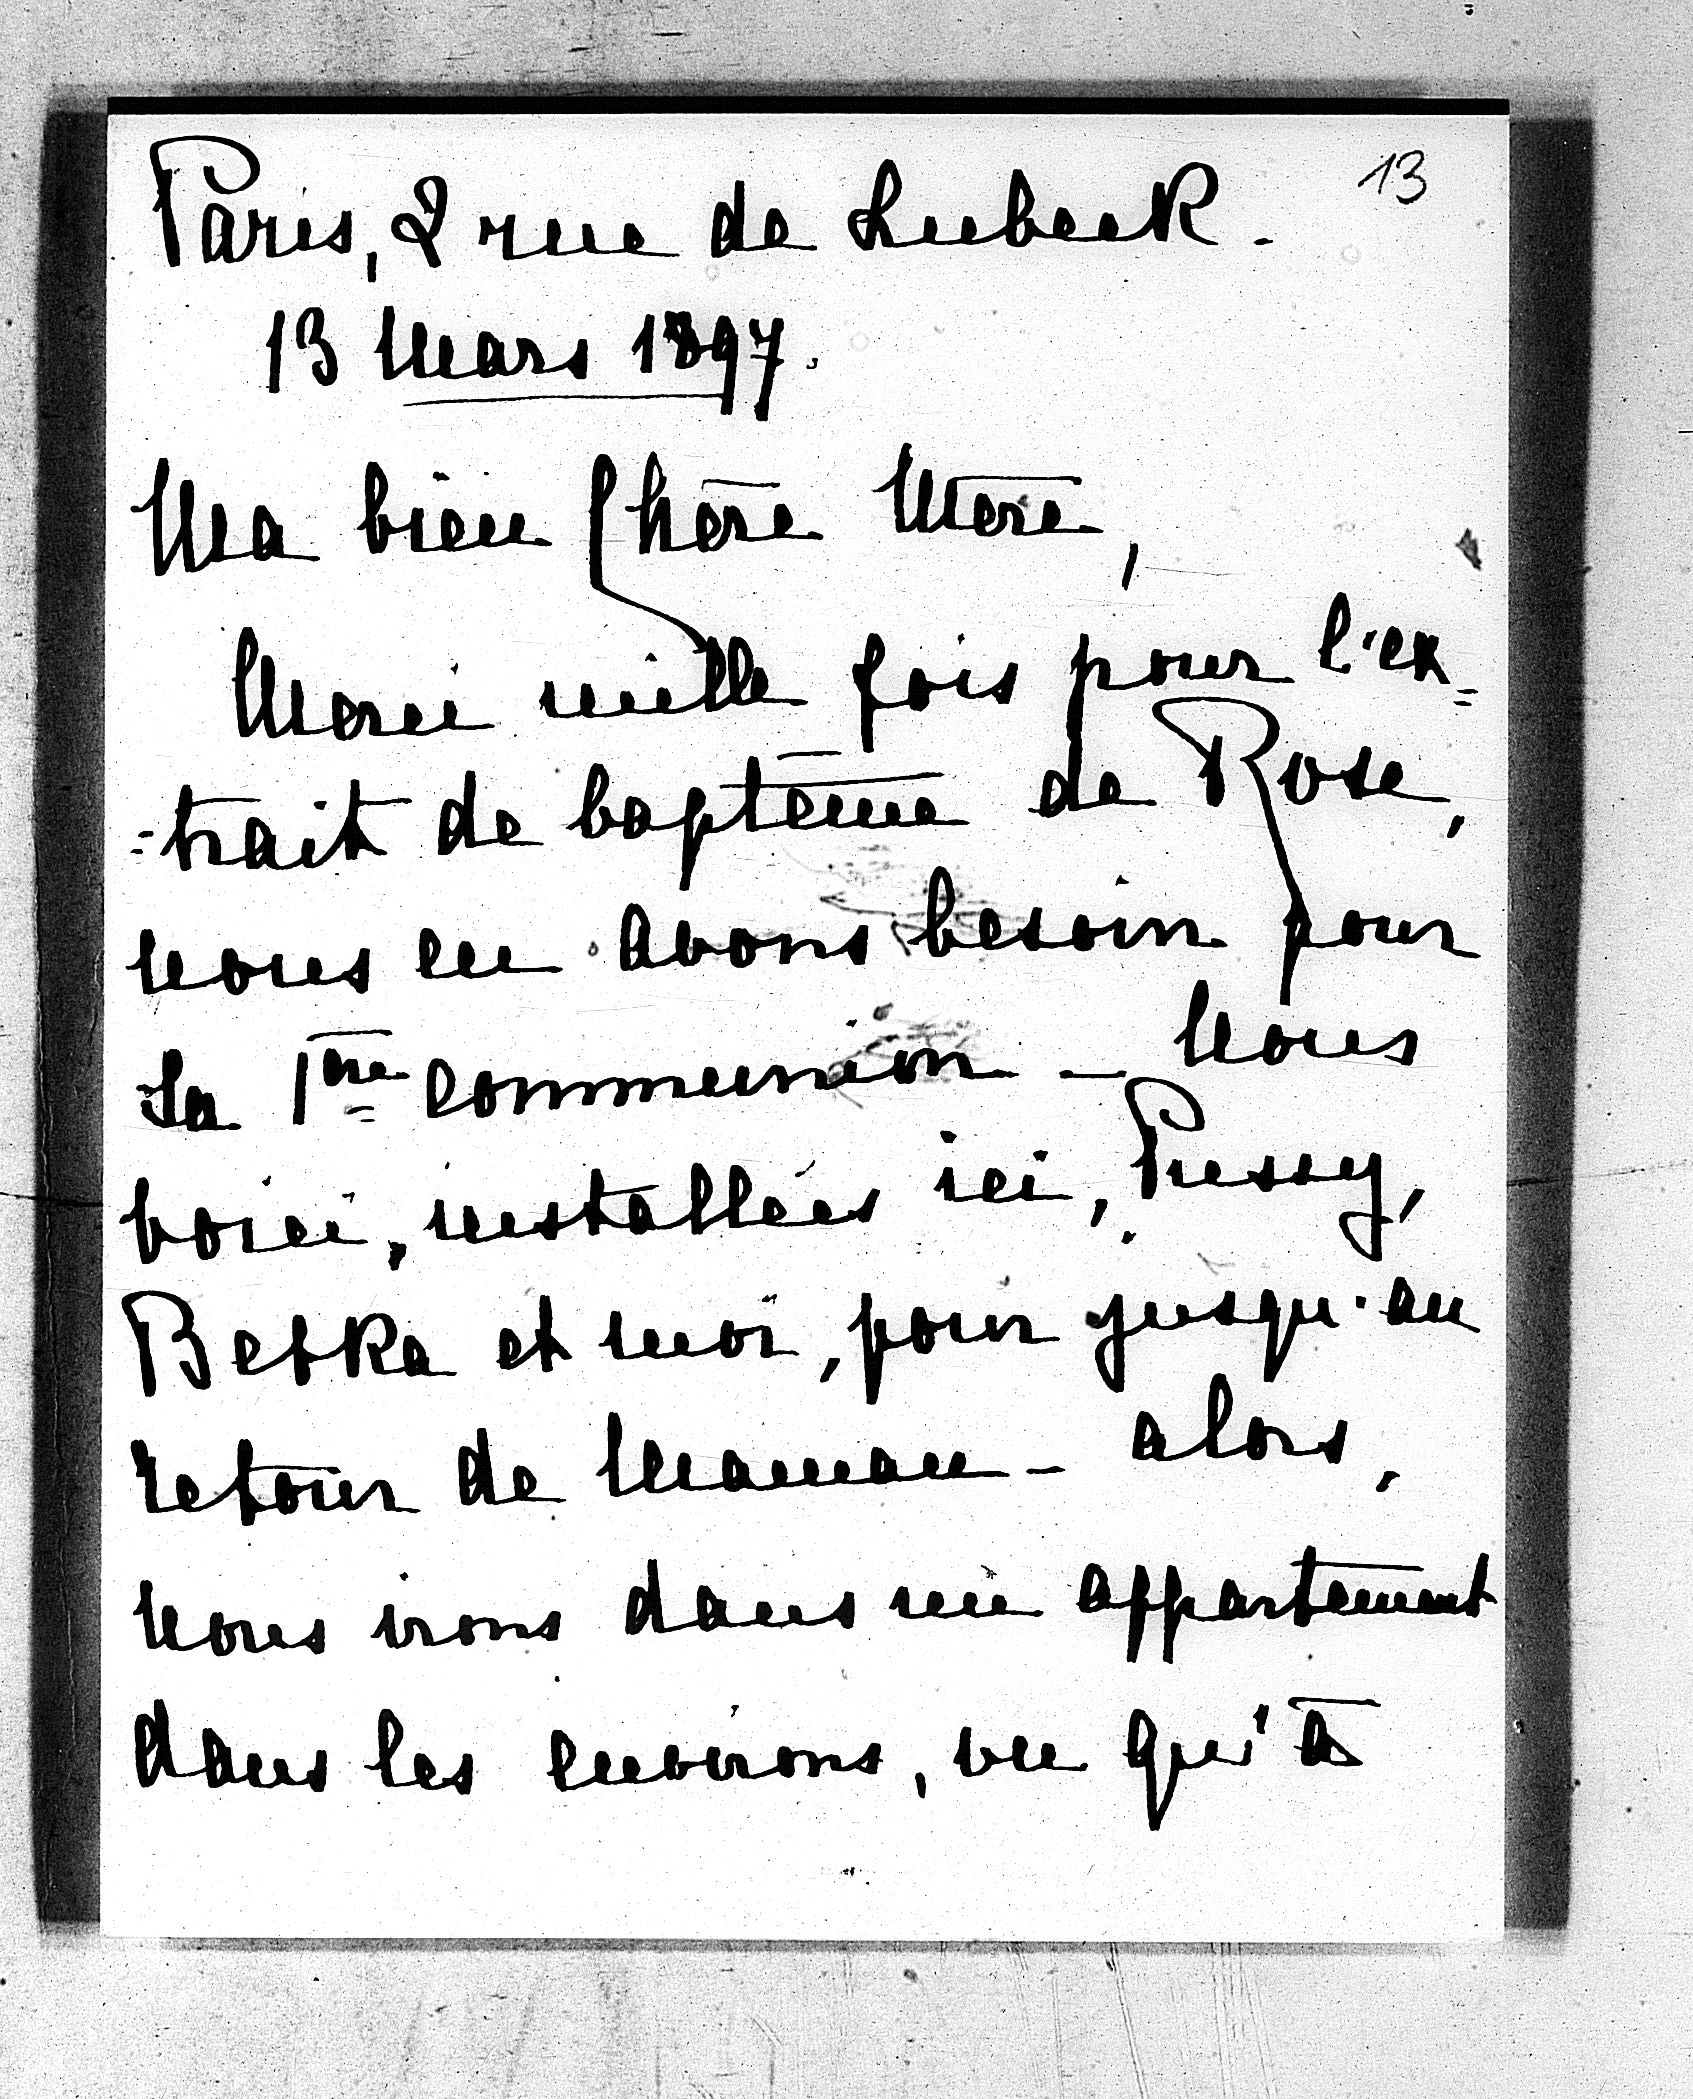 13
Paris, 2 rue de Lubeck.
13 Mars 1897.
Ma bien Chère Mère,
Merci mille fois pour l'ex=
=trait de baptême de Rose,
nous en avons besoin pour
sa 1ère communion _ Nous
voici, installées ici, Pussy,
Betka et moi, pour jusqu'au
retour de Maman _ alors,
nous irons dans un appartement
dans les environs, vu qu'à